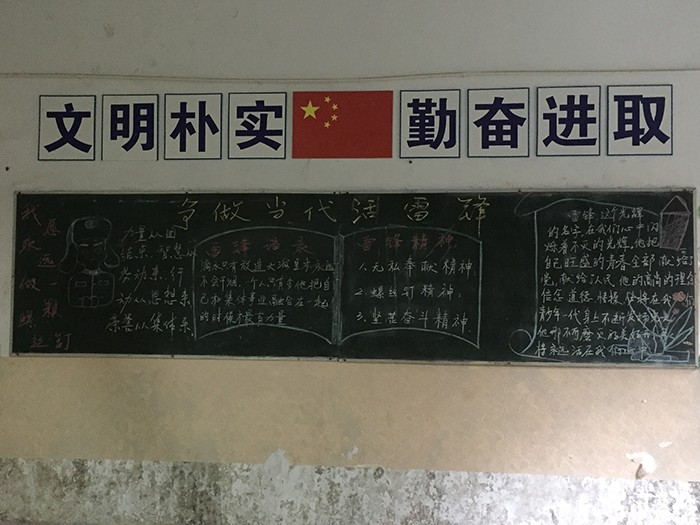 文明朴实 勤奋进取
争做当代活雷锋
我愿
永远
做一颗
螺丝钉
力量从团
结来,智慧从
劳动来,行
动从思想来,
荣誉从集体来。
雷锋语录
滴水只有放进大海里才永远
不会干涸,一个人只有当他把自
己和集体事业融合在一起
的时候才最有力量
雷锋精神
1.无私奉献精神
2.螺丝钉精神;
3.坚苦奋斗精神
雷锋这光辉
的名字在我们心中闪
烁着不灭的光辉,他把
自己旺盛的青春全部献给了
党,献给了人民,他的高尚的理念
信念道德情操
青少年一代身上不断发扬光大